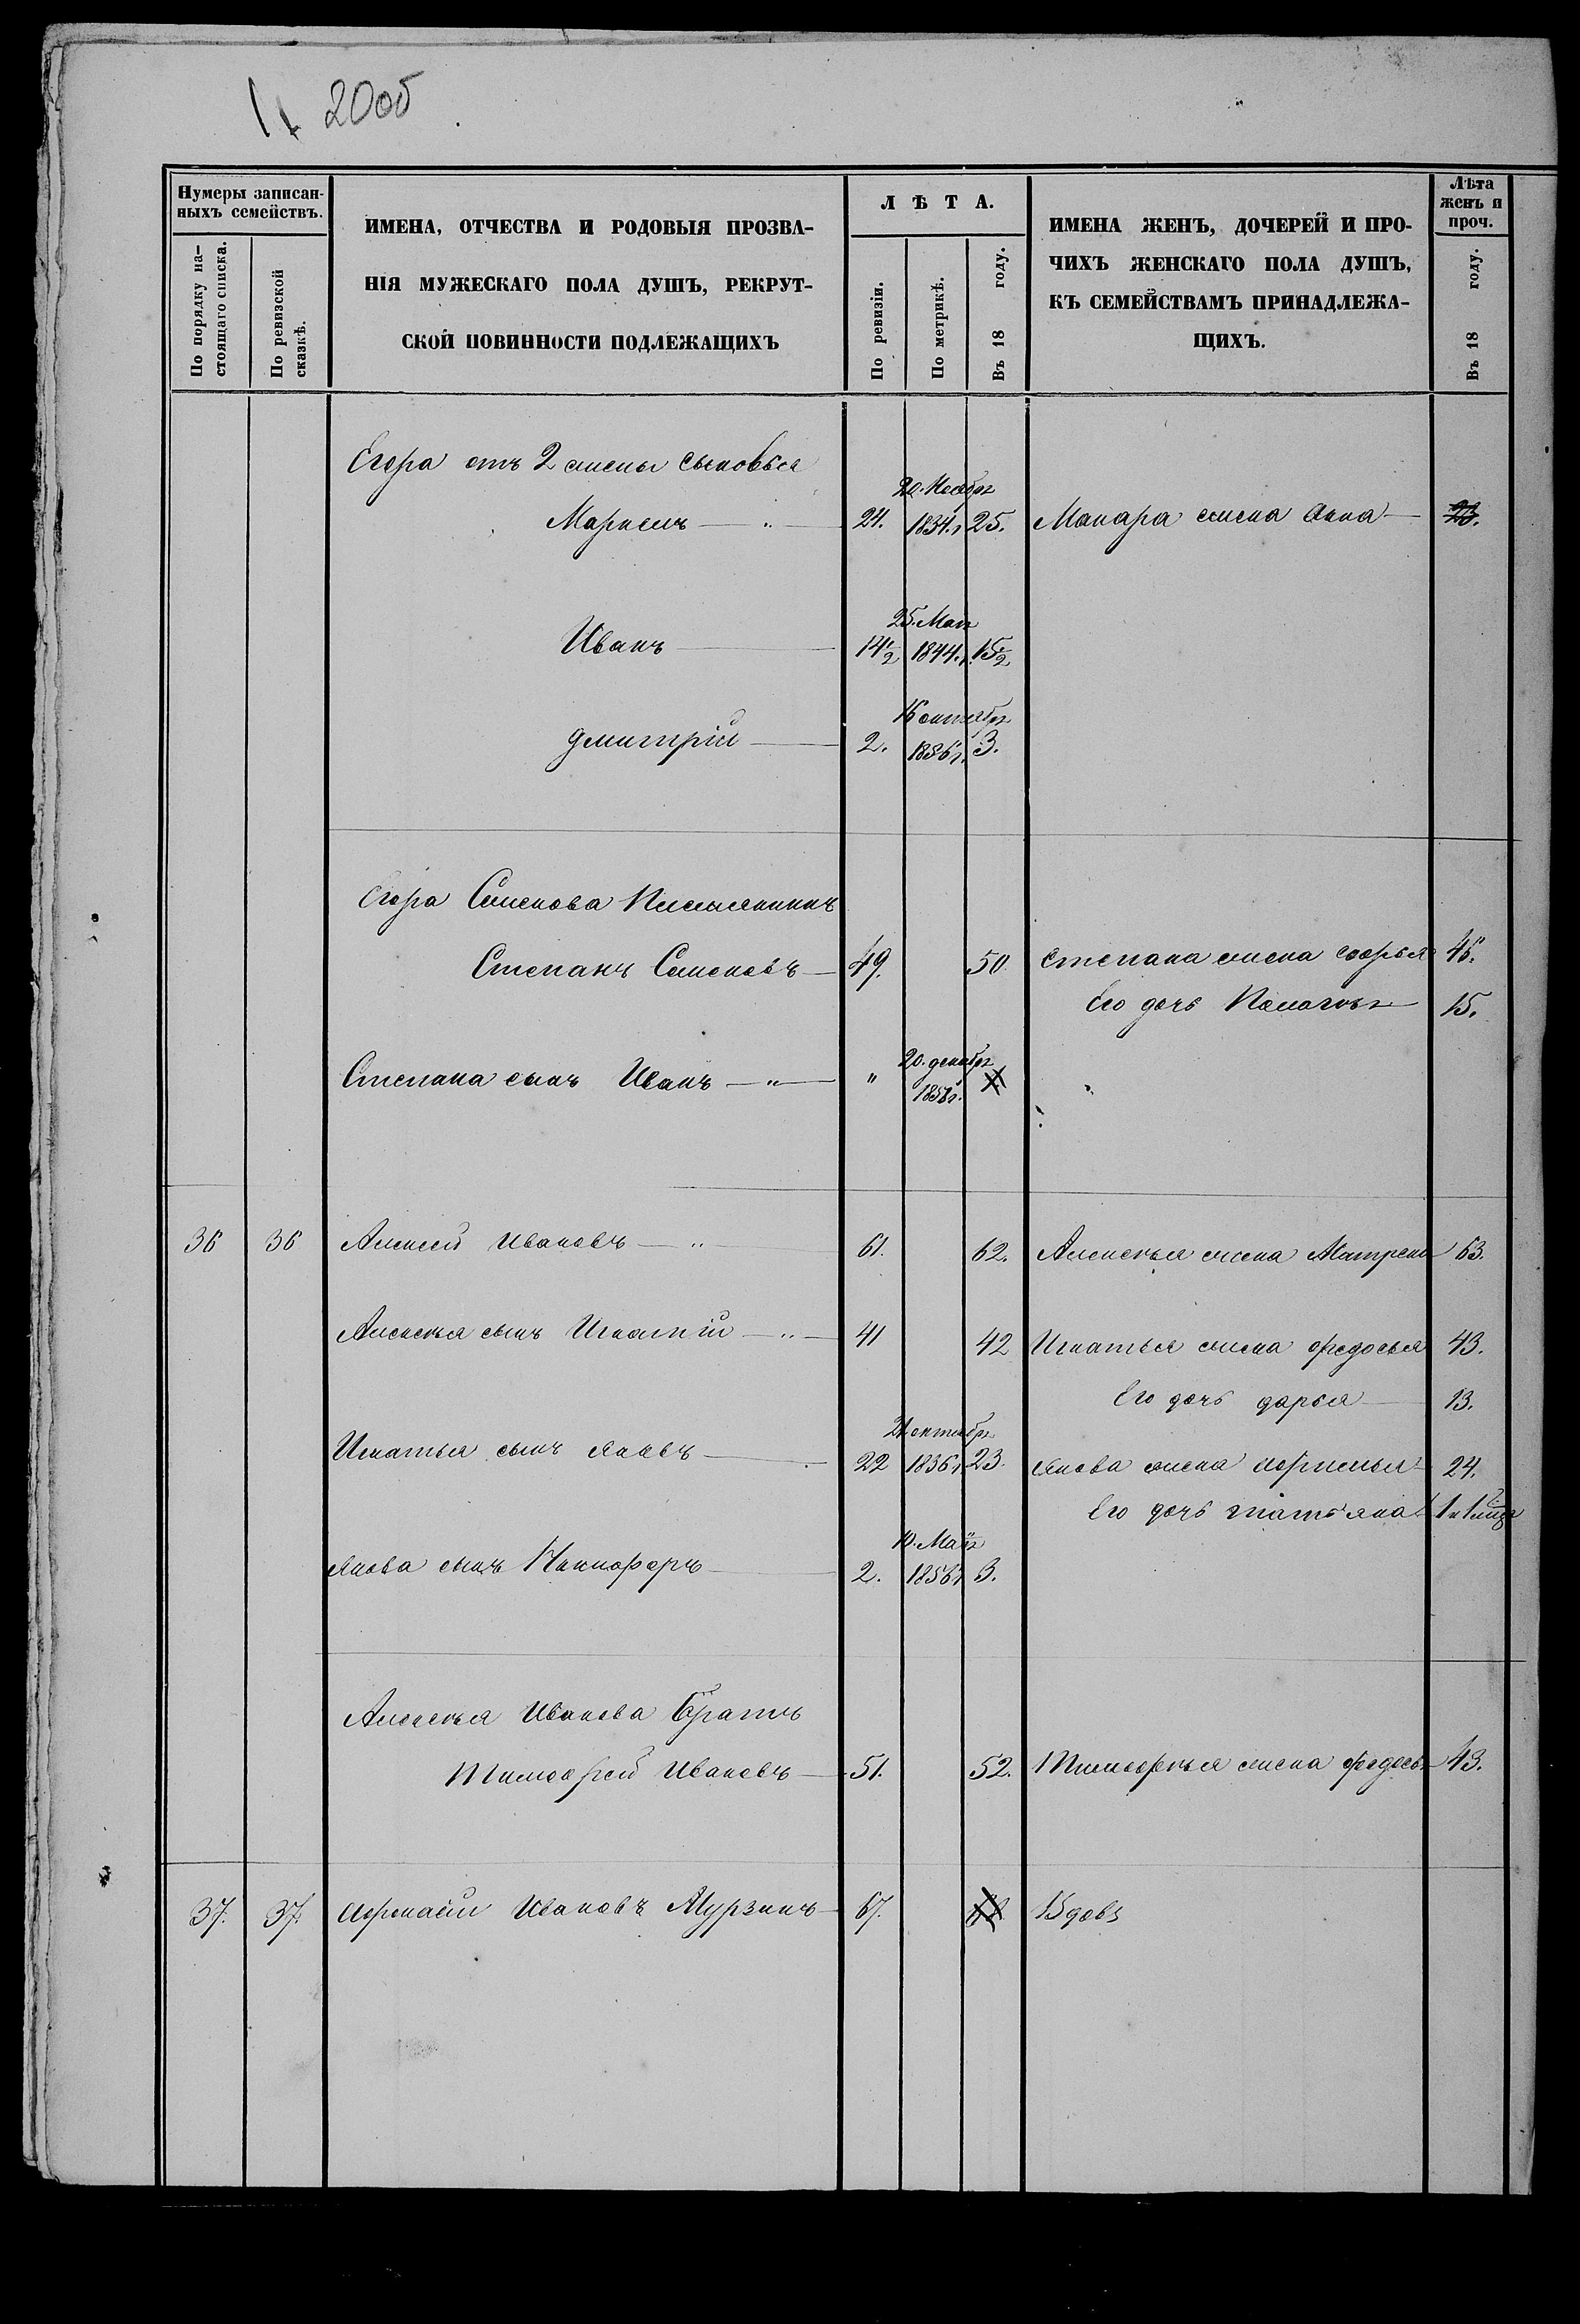 200б
Нумеры записан-
ныхъ семействъ.
По порядку на-
стоящаго списка.
По ревизской
сказкѣ.
ИМЕНА, ОТЧЕСТВА И РОДОВЫЯ ПРОЗВА-
НІЯ МУЖЕСКАГО ПОЛА ДУШЪ, РЕКРУТ-
СКОЙ ПОВИННОСТИ ПОДЛЕЖАЩИХЪ
ЛѢТА.
По ревизіи.
По метрикѣ.
Въ 18 году.
ИМЕНА ЖЕНЪ, ДОЧЕРЕЙ И ПРО-
ЧИХЪ ЖЕНСКАГО ПОЛА ДУШЪ,
КЪ СЕМЕЙСТВАМЪ ПРИНАДЛЕЖА-
ЩИХЪ.
Лѣта
женъ и
проч.
Въ 18 году.
Егора отъ 2 жены сыновья
20. Ноября
24. 1834.г. 25. Макара жена Анна
25. Мая
Иванъ 14½ 1844.г. 15½
октября
Дмитрій 2. 1856г. 3.
Егора Семенова Племянникъ
Степанъ Семеновъ 49. 50 Степана жена Софья
Его дочь 15.
20. декабря
Степана сынъ Иванъ " 1858г.
36 36 Алексей Ивановъ 61. 62. Алексея жена Матрена 63.
Алексея сынъ Игнатій 41 42 Игнатья жена Федосья 43.
Его дочь Дарья 13.
21 октября
Игнатья сынъ Яковъ 22 1836г. 23 Якова жена 24.
Его дочь Татьяна
10. Мая
Якова сынъ Никифоръ 2. 1856г. 3.
Алексея Иванова Братъ
Тимофей Ивановъ 51. 52. Тимофея жена Федосья 43.
37. 37. Ивановъ Мурзинъ 67. Вдовъ